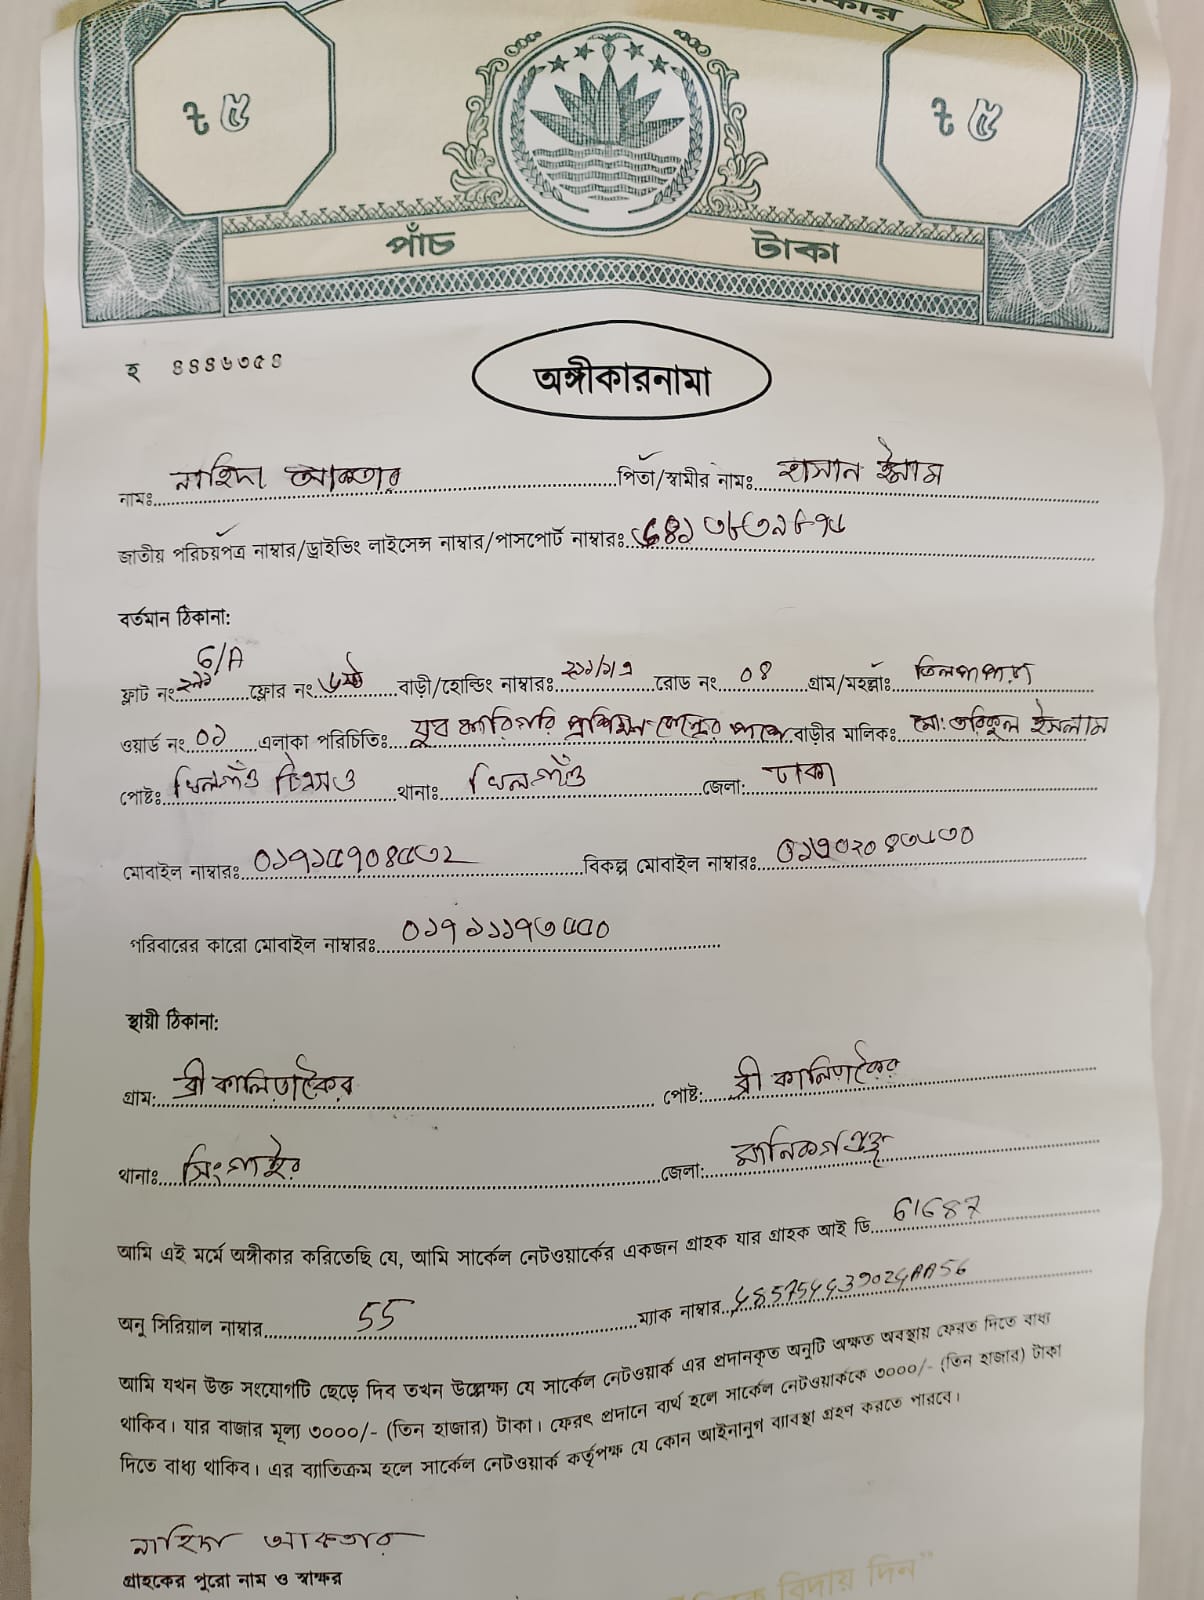 ৳ ৫
৳ ৫
পাঁচ টাকা
হ ৪৪৪৬৩৫৪
অঙ্গীকারনামা
নামঃ নাহিদা আকতার পিতা/স্বামীর নামঃ হাসান ইমাম
জাতীয় পরিচয়পত্র নাম্বার/ড্রাইভিং লাইসেন্স নাম্বার/পাসপোর্ট নাম্বারঃ
বর্তমান ঠিকানা:
6/A
ফ্লাট নং ফ্লোর নং ৬ষ্ঠ বাড়ী/হোল্ডিং নাম্বারঃ রোড নং ০৪ গ্রাম/মহল্লাঃ তিলপাপাড়া
ওয়ার্ড নং ০১ এলাকা পরিচিতিঃ যুব কারিগরি প্রশিক্ষণ কেন্দ্রের পাশে বাড়ীর মালিকঃ মো: তরিকুল ইসলাম
পোষ্টঃ খিলগাঁও থানাঃ খিলগাঁও জেলা: ঢাকা
মোবাইল নাম্বারঃ ০১৭১৫৭০৪৫৩২ বিকল্প মোবাইল নাম্বারঃ
পরিবারের কারো মোবাইল নাম্বারঃ ০১৭১১১৭৩৫৫০
স্থায়ী ঠিকানা:
গ্রাম: শ্রী কালিতাকৈর পোষ্ট: শ্রী কালিতাকৈর
থানাঃ সিংগাইর জেলা: মানিকগঞ্জ
আমি এই মর্মে অঙ্গীকার করিতেছি যে, আমি সার্কেল নেটওয়ার্কের একজন গ্রাহক যার গ্রাহক আই ডি 61687
অনু সিরিয়াল নাম্বার 55 ম্যাক নাম্বার
আমি যখন উক্ত সংযোগটি ছেড়ে দিব তখন উল্লেক্ষ্য যে সার্কেল নেটওয়ার্ক এর প্রদানকৃত অনুটি অক্ষত অবস্থায় ফেরত দিতে বাধ্য
থাকিব। যার বাজার মূল্য ৩০০০/- (তিন হাজার) টাকা। ফেরৎ প্রদানে ব্যর্থ হলে সার্কেল নেটওয়ার্ককে ৩০০০/- (তিন হাজার) টাকা
দিতে বাধ্য থাকিব। এর ব্যাতিক্রম হলে সার্কেল নেটওয়ার্ক কর্তৃপক্ষ যে কোন আইনানুগ ব্যাবস্থা গ্রহণ করতে পারবে।
নাহিদা আকতার
গ্রাহকের পুরো নাম ও স্বাক্ষর
বিদায় দিন"